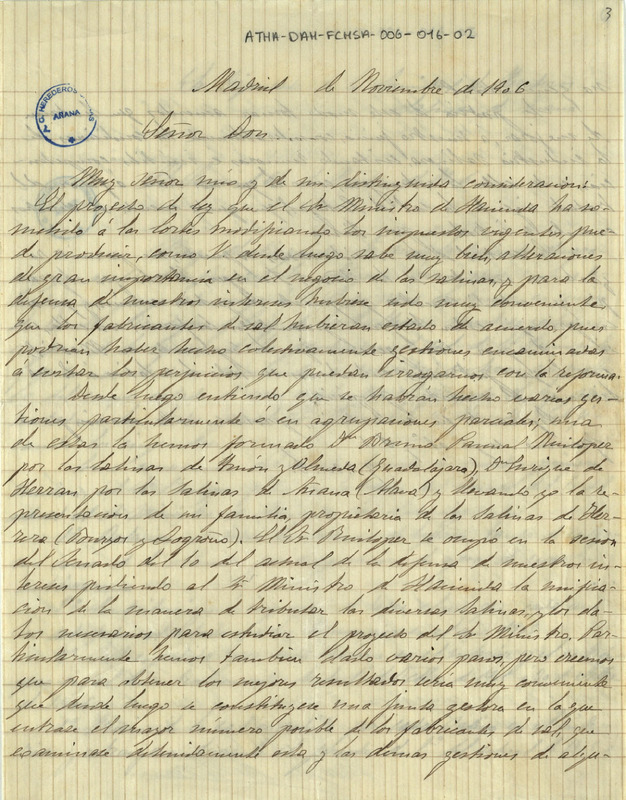 3
ATHA-DAH-FCHSA-006-016-02
Madrid de Noviembre de 1906
HEREDEROS
ARANA
Señor Don....
Muy Señor mio y de mi distinguida consideracion:
El proyecto de ley que el Sr Ministro de Hacienda ha so-
metido a las Cortes modificando los impuestos vigentes pue-
de producir, como V. desde luego sabe muy bien, alteraciones
de gran importancia en el negocio de las salinas, y para la
defensa de nuestros intereses hubiese sido muy conveniente
que los fabricantes de sal hubieran estado de acuerdo, pues
podrian haber hecho colectivamente gestiones encaminadas
á evitar los perjuicios que puedan irrogarnos con la reforma.
Desde luego entiendo que se habrán hecho varias ges-
tiones particularmente ó en agrupaciones parciales; una
de estas la hemos formado Dn Bruno Pascual Ruilopez
por las salinas de Imón y Olmeda (Guadalajara), Dn Enrique de
Herran por las salinas de Añana (Alava) y llevando yo la re-
presentación de mi familia, propietaria de las Salinas de Her-
rera (Burgos y Logroño). El Sr Ruilopez se ocupó en la sesion
del Senado del 10 del actual de la defensa de nuestros in-
tereses pidiendo al Sr Ministro de Hacienda la unifica-
cion de la manera de tributar las diversas Salinas, y los da-
tos necesarios para estudiar el proyecto del Sr Ministro. Par-
ticularmente hemos tambien dado varios pasos, pero creemos
que para obtener los mejores resultados seria muy conveniente
que desde luego se constituyese una junta gestora en la que
entrase el mayor número posible de los fabricantes de sal, que
examinase detenidamente esta y las demas gestiones de algu-